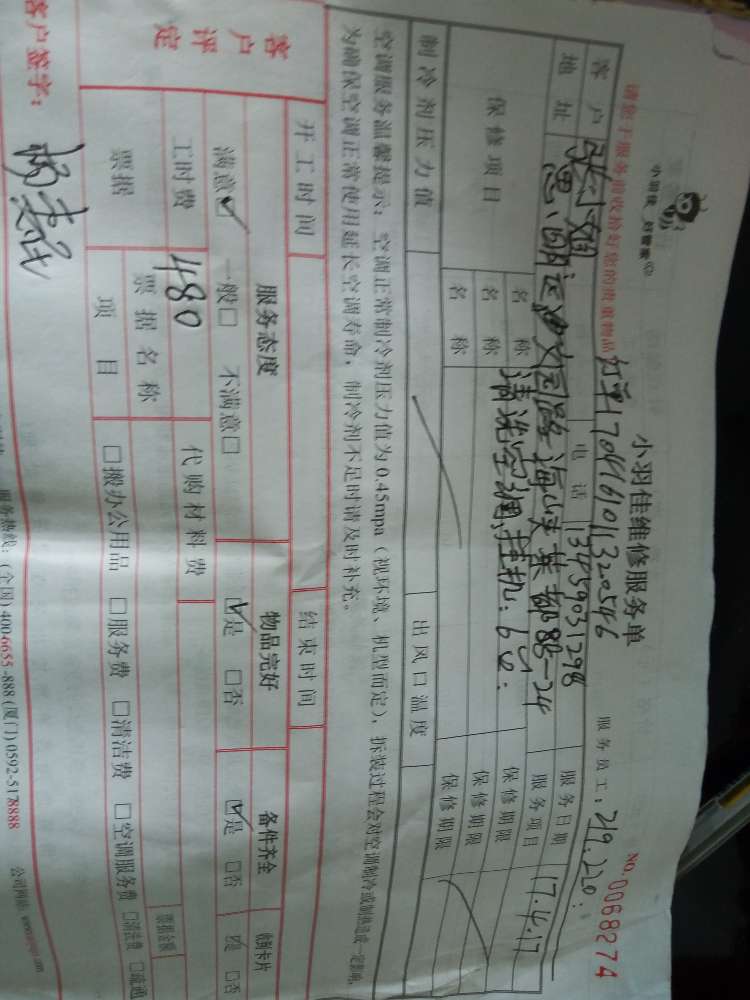 小羽佳 好管家
小羽佳维修服务单
NO. 0068274
请您于服务前收拾好您的贵重物品
打单170416101320546
服务员工: 219.220:
客户 张小姐 电话 13459031298 服务日期 17.4.17
地址 思明区 文园路海峡英郡88-24 服务项目
保修项目 名称 清洗空调:挂机:6台: 保修期限
名称 保修期限
名称 保修期限
制冷剂压力值 出风口温度
空调服务温馨提示: 空调正常制冷剂压力值为0.45mpa (视环境、机型而定), 拆装过程会对空调制冷或制热造成一定影响,
为确保空调正常使用延长空调寿命, 制冷剂不足时请及时补充。
开工时间 结束时间
客户评定 服务态度 物品完好 备件齐全 收到卡片
满意☑ 一般□ 不满意□ ☑是 □否 ☑是 □否 □是 □否
工时费 480 代购材料费
票据 票据名称 票据金额
项目 □搬办公用品 □服务费 □清洁费 □空调服务费 □清洁费 □疏通
客户签字:
服务热线: (全国) 4006655-888 (厦门) 0592-5178888 公司网站: